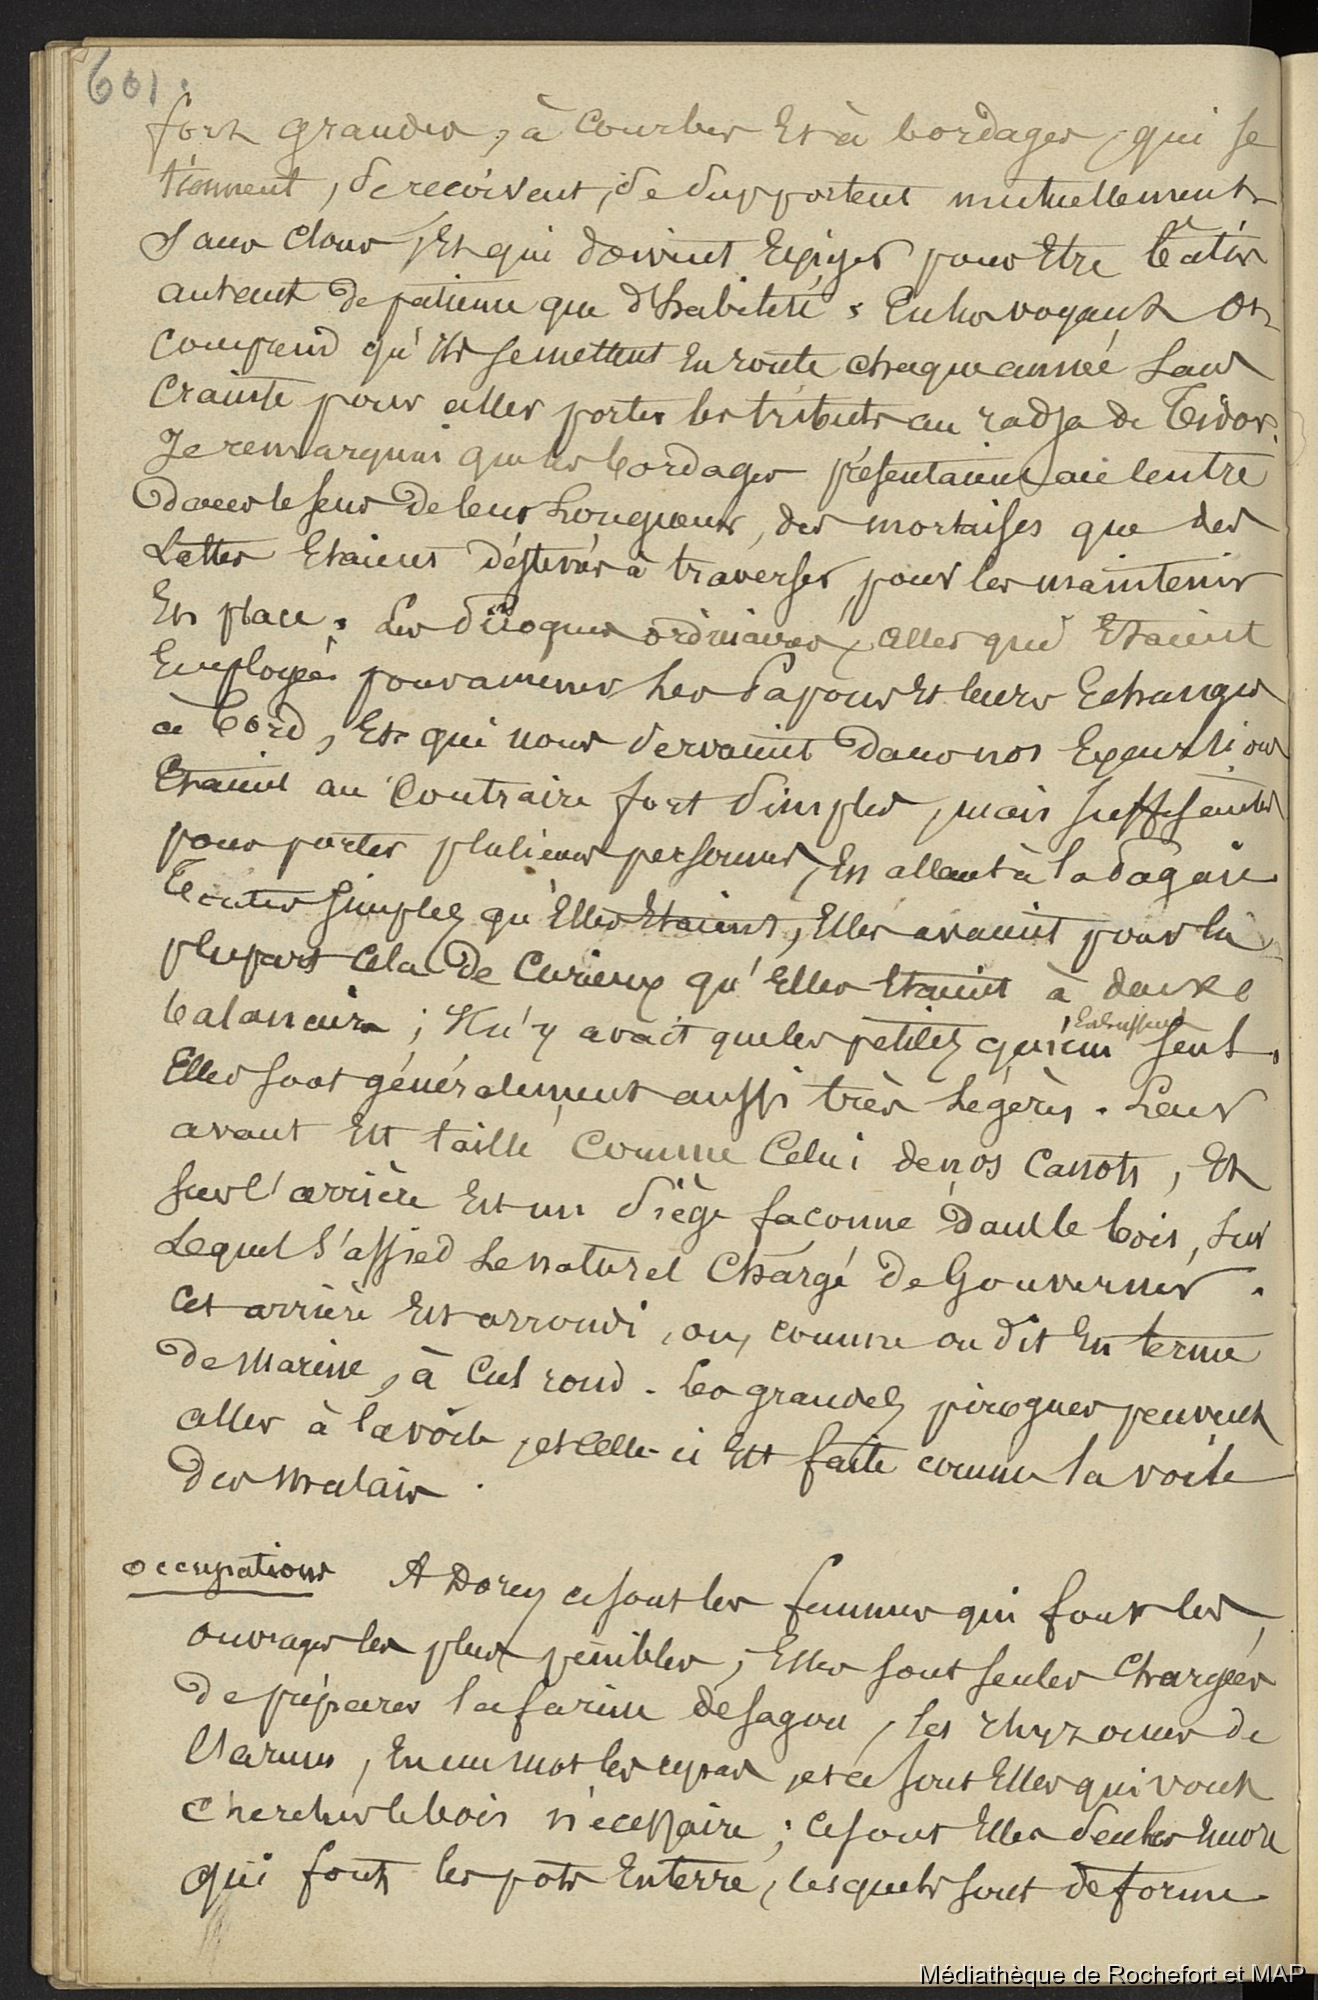 601.
fort grandes, à courbes et à bordages, qui se
tiennent, se reçoivent, se supportent mutuellement
sans clous, et qui doivent exiger pour être bâties
autant de patience que d'habileté. En les voyant on
comprend qu'ils se mettent en route chaque année sans
crainte pour aller porter les tributs au radja de Tidor.
Je remarquai que les bordages présentaient au centre
dans le sens de leur longueur, des mortaises que des
lattes étaient destinées à traverser pour les maintenir
en place. Les pirogues ordinaires, celles qui étaient
employées pour amener les Papous et leurs échanges
à bord, et qui nous servaient dans nos excursions
étaient au contraire fort simples, mais suffisantes
pour porter plusieurs personnes, en allant à la pagaie.
Toutes simples qu'elles étaient, elles avaient pour la
plupart cela de curieux qu'elles étaient à deux
balanciers; il n'y avait que les petites qui n'en eussent seul.
Elles sont généralement aussi très légères. Leur
avant est taillé comme celui de nos canots, et
sur l'arrière est un siège façonné dans le bois, sur
lequel s'assied le naturel chargé de gouverner.
Cet arrière est arrondi, ou, comme on dit en terme
de marine, à cul rond. Les grandes pirogues peuvent
aller à la voile, et celle-ci est faite comme la voile
des Malais.
Occupations A Dorey ce sont les femmes qui font les
ouvrages les plus pénibles; elles sont seules chargées
de préparer la farine de sagou, les rhyzomes de
l'arum, en un mot les repas, et ce sont elles qui vont
chercher le bois nécessaire; ce sont elles seules encore
qui font les pots en terre, lesquels sont de forme
Médiathèque de Rochefort et MAP